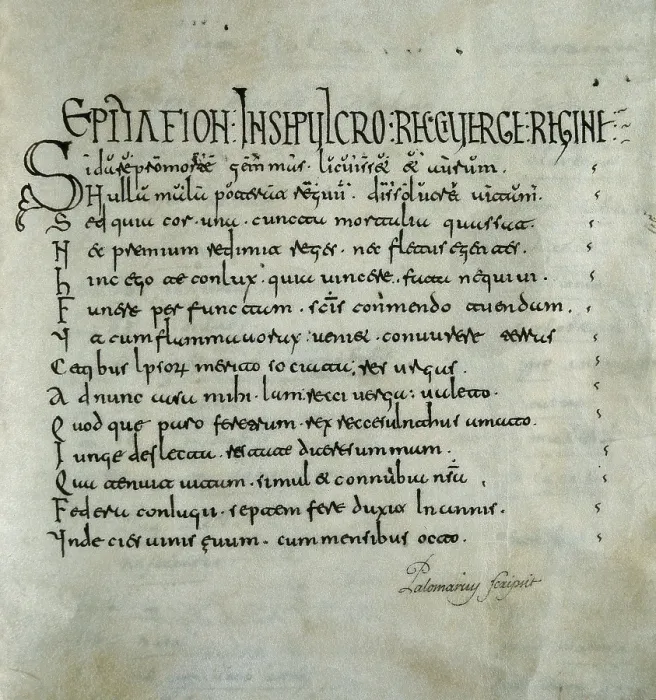 EPITAFION: IN SEPULCRO: RECCUERGE: REGINE:
Si dare pro morte gemmas licuisset et aurum.
Nulla mala poterant regum dissoluere uitam.
Sed quia cor una cuncta mortalia quassat.
Nec premium redimit reges nec fletus egentes.
hinc ego te conlux quia uincere fata nequiui.
Funere per functam scis conmendo tuendam.
Ut cum flamma uorax ueniet conuurere terras
Cetibus ipsorum merito sociata resurgas.
Ad nunc cara mihi iam recciuerga ualeto.
Quod que paro feretrum rex reccesuinthus amato.
restat dicere summam.
Qua tenuit uitam simul et connubia nsa
Federa coniugii septem fere duxit in annis.
Undecies uinis euum cum mensibus octo.
Palomarius scripsit